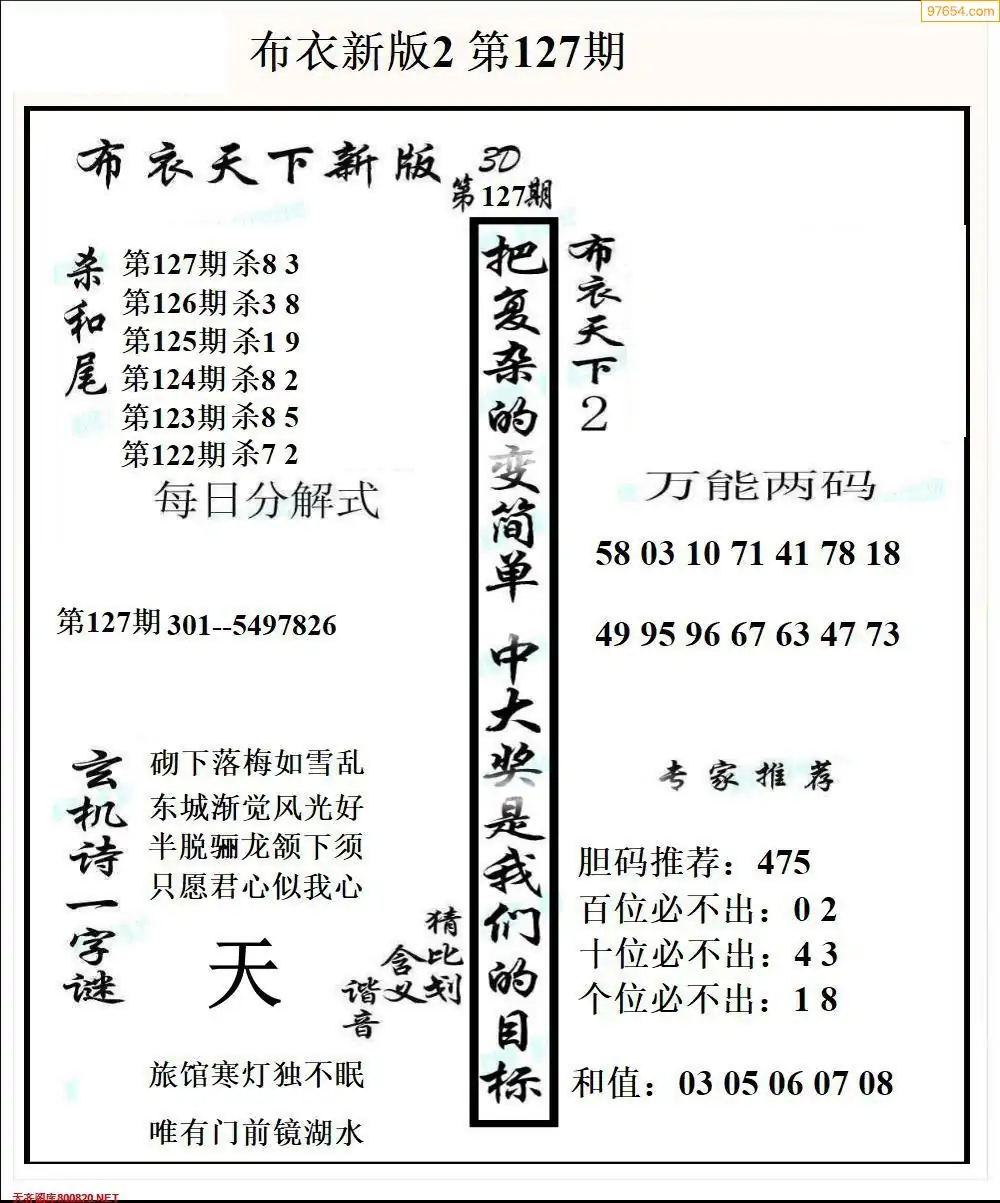 97654.com
布衣新版2 第127期
布衣天下新版 3D
第127期
杀和尾
第127期杀8 3
第126期杀3 8
第125期杀1 9
第124期杀8 2
第123期杀8 5
第122期杀7 2
每日分解式
第127期301--5497826
玄机诗一字谜
砌下落梅如雪乱
东城渐觉风光好
半脱骊龙颔下须
只愿君心似我心
天
猜比划
含义
谐音
旅馆寒灯独不眠
唯有门前镜湖水
把复杂的变简单 中大奖是我们的目标
布衣天下2
万能两码
58 03 10 71 41 78 18
49 95 96 67 63 47 73
专家推荐
胆码推荐：475
百位必不出：0 2
十位必不出：4 3
个位必不出：1 8
和值：03 05 06 07 08
天齐图库800820.NET